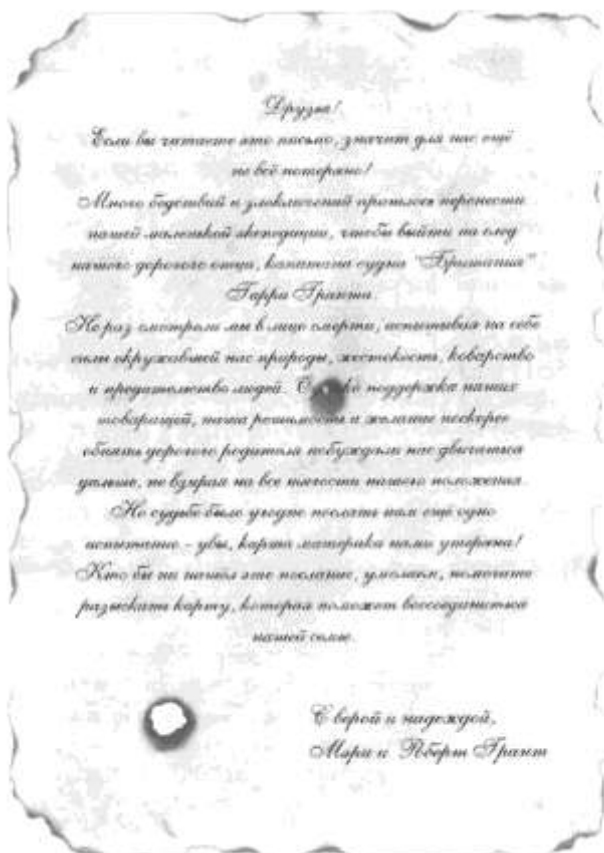 Друзья!
Если вы читаете это письмо, значит для нас ещё
не всё потеряно!
Много бедствий и злоключений пришлось перенести
нашей маленькой экспедиции, чтобы выйти на след
нашего дорогого отца, капитана судна "Британия"
Гарри Гранта.
Не раз смотрели мы в лицо смерти, испытывая на себе
силы окружавшей нас природы, жестокость, коварство
и предательство людей. поддержка наших
товарищей, наша решимость и желание поскорее
обнять дорогого родителя побуждали нас двигаться
дальше, не взирая на все тягости нашего положения.
Но судьбе было угодно послать нам ещё одно
испытание - увы, карта материка нами утеряна!
Кто бы ни нашёл это послание, умоляем, помогите
разыскать карту, которая поможет воссоединиться
нашей семье.
С верой и надеждой,
Мэри и Роберт Грант